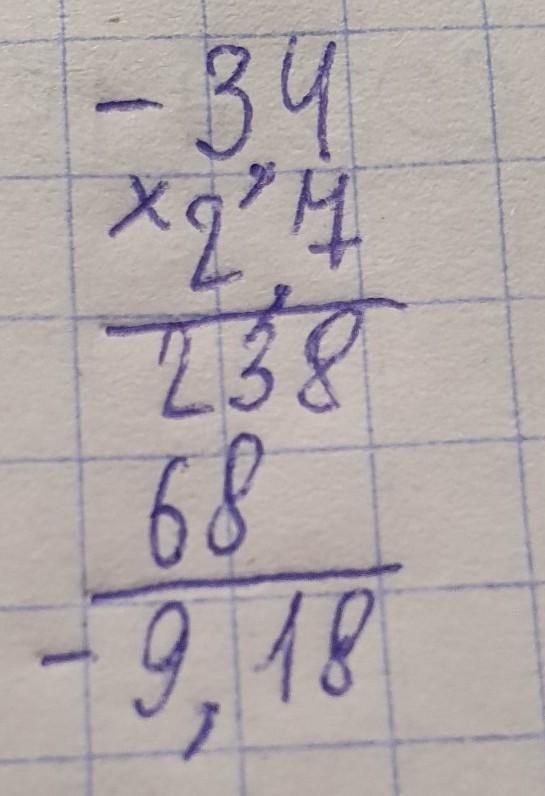 - 3,4
× 2,7
238
68
- 9,18